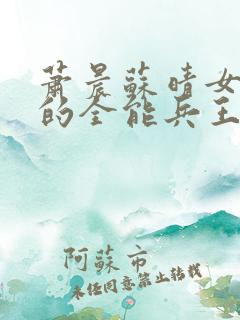 蕭晨蘇晴女
的全能兵王
阿蘇市
未经同意禁止转载